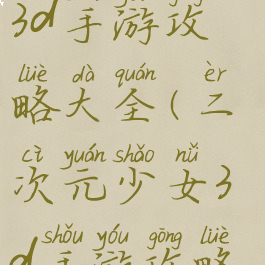 3d手游攻
lüè dà quán èr
略大全(二
cì yuán shǎo nǚ
次元少女3
shǒu yóu gōng lüè
d手游攻略